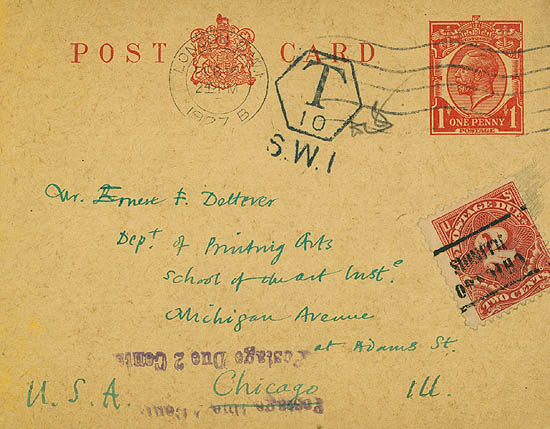 POST CARD
LONDON S.W.1
1927 B
T
10
S.W.1
1 ONE PENNY 1
POSTAGE
Mr. Ernest F. Detterer
Dept of Printing Arts
School of the Art Inste
Michigan Avenue
at Adams St.
Chicago Ill.
U.S.A.
Postage Due 2 Cents
Postage Due
POSTAGE DUE
2
TWO CENTS
CHICAGO
ILLINOIS